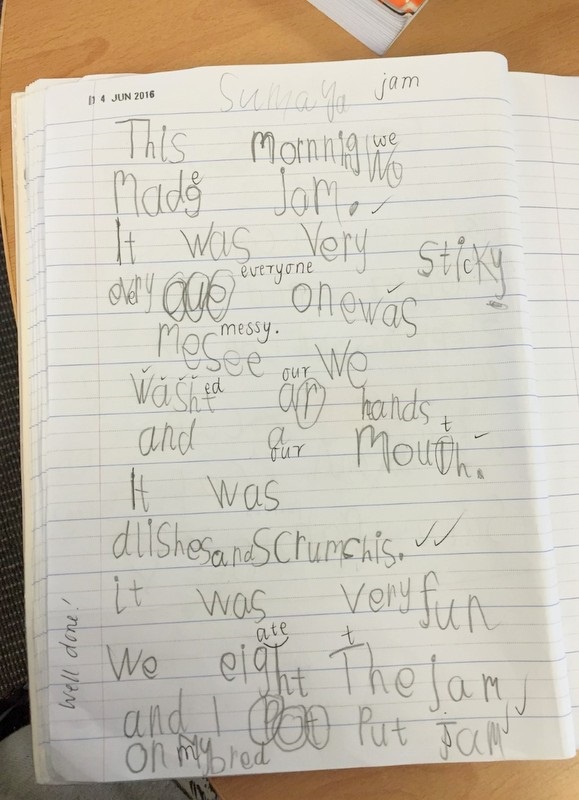 14 JUN 2016
Sumaya jam
This mornnig we
made jam.
It was very sticky
every everyone one was
mesee messy. We
washt ed our hands
and our mouth.
It was
dlishes and Scrumshis.
it was very fun
We eight ate The t jam
and I Put jam
on my bred
Well done!